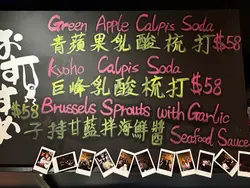 おすすめ
Green Apple Calpis Soda
青蘋果乳酸梳打 $58
Kyoho Calpis Soda
巨峰乳酸梳打 $58
$58 Brussels Sprouts with Garlic
子持甘藍拌海鮮醬 Seafood Sauce